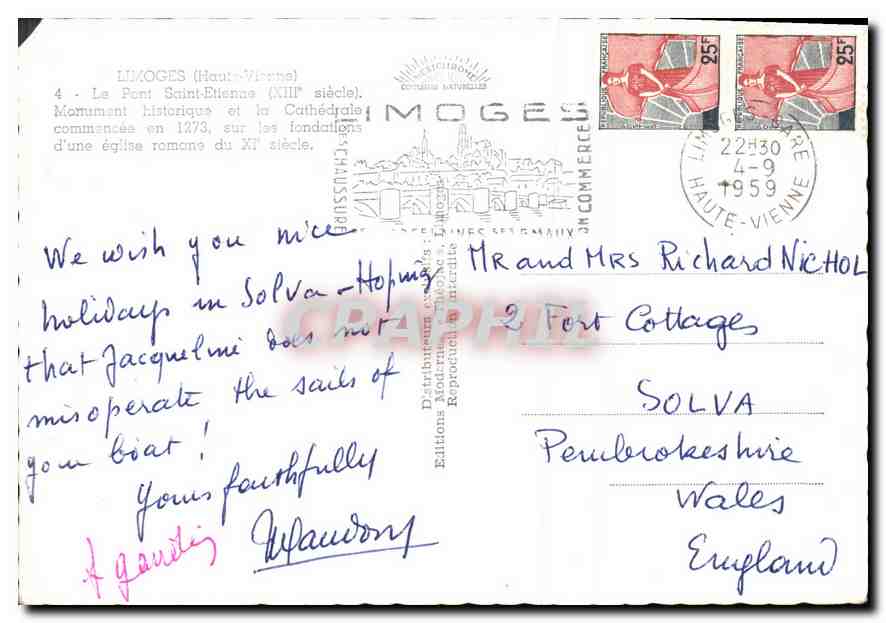 LIMOGES (Haute-Vienne)
4 - Le Pont Saint-Etienne (XIIIe siècle).
Monument historique et la Cathédrale
commencée en 1273, sur les fondations
d'une église romane du XIe siècle.
LIMOGES
CHAUSSURE
COMMERCE
RÉPUBLIQUE FRANÇAISE
25F
RÉPUBLIQUE FRANÇAISE
25F
LIMOGES GARE
22H30
4-9
1959
HAUTE-VIENNE
We wish you nice
holidays in Solva - Hoping
that Jacqueline does not
misoperate the sails of
your boat !
Yours faithfully
Distributeurs exclusifs :
Editions Modernes Théojac, Limoges
Reproduction interdite
MR and MRS Richard NICHOL
2 Fort Cottages
SOLVA
Pembrokeshire
Wales
England
CPAPHIL